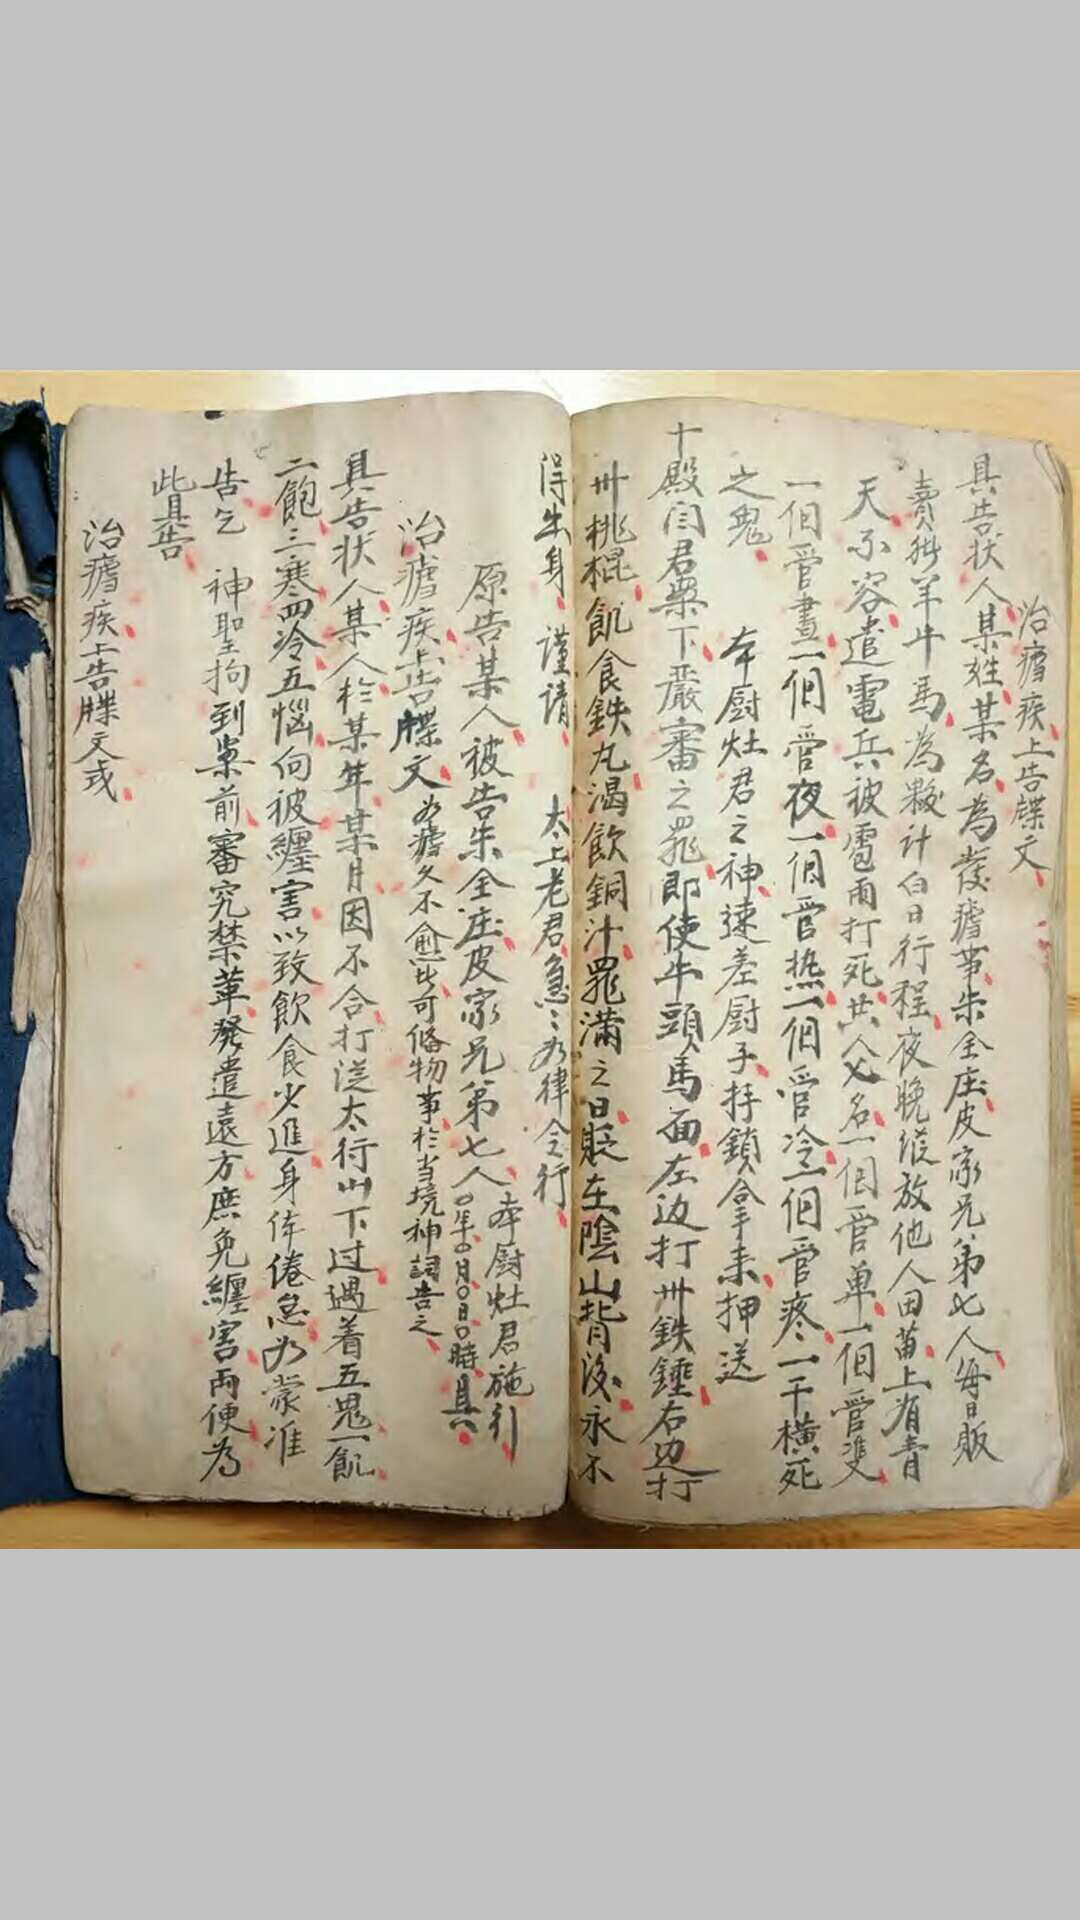 治瘧疾上告牒文
具告狀人某姓某名為發瘧事朱全庄皮家兄弟七人每日販
賣豬羊牛馬為夥計白日行程夜晚縱放他人田苗上有青
天不容遣電兵被雹雨打死共人七名一個管单一個管雙
一個管晝一個管夜一個管热一個管冷一個管疼一干横死
之鬼 本厨灶君之神速差厨子持鎖拿来押送
十殿闫君案下嚴審之罪即使牛頭馬面左边打卅鉄錘右边打
卅桃棍飢食鉄丸渴飲銅汁罪滿之日貶在陰山背後永不
得出身 謹請 太上老君急〻如律令行
原告某人被告朱全庄皮家兄弟七人 本厨灶君施引
〇年〇月〇日〇時具
治瘧疾上告牒文 如瘧久不愈此可俻物事於当境神詞告之
具告状人某人於某年某月因不合打從太行山下过遇着五鬼一飢
二飽三寒四冷五惱何被纏害以致飲食少進身体倦怠如蒙准
告乞 神聖拘到案前審究禁革發遣遠方庶免纏害両便為
此具告
治瘧疾上告牒文式